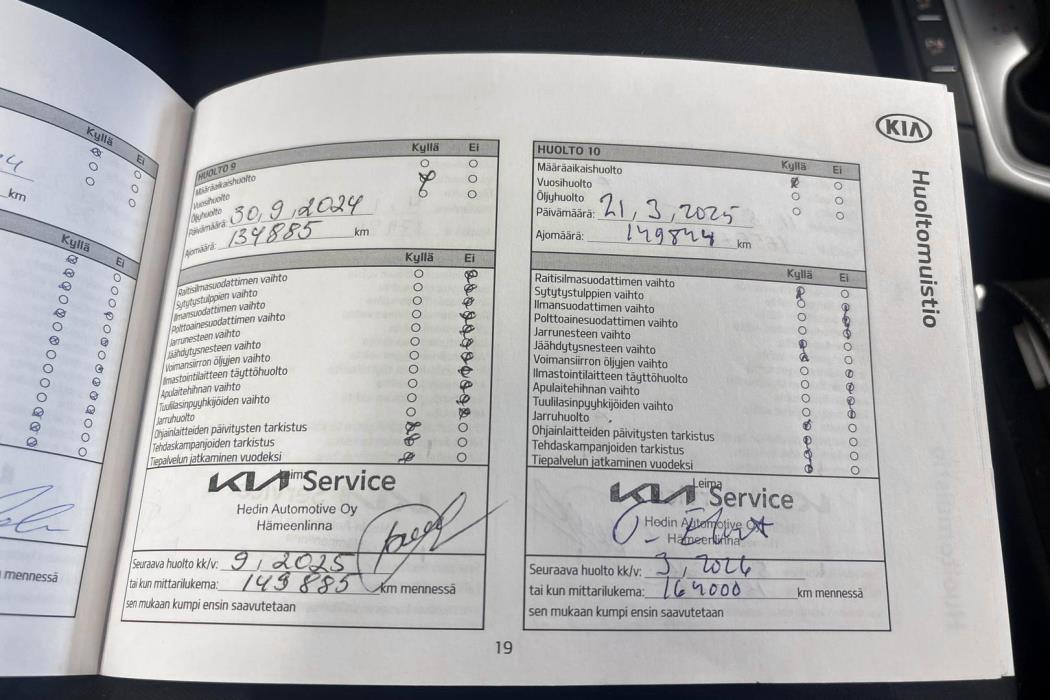 Kyllä
Ei
km
Kyllä
Ei
mennessä
HUOLTO 9
Kyllä Ei
Määräaikaishuolto
Vuosihuolto
Öljyhuolto
Päivämäärä: 30,9,2024
Ajomäärä: 134885 km
Kyllä Ei
Raitisilmasuodattimen vaihto
Sytytystulppien vaihto
Ilmansuodattimen vaihto
Polttoainesuodattimen vaihto
Jarrunesteen vaihto
Jäähdytysnesteen vaihto
Voimansiirron öljyjen vaihto
Ilmastointilaitteen täyttöhuolto
Apulaitehihnan vaihto
Tuulilasinpyyhkijöiden vaihto
Jarruhuolto
Ohjainlaitteiden päivitysten tarkistus
Tehdaskampanjoiden tarkistus
Tiepalvelun jatkaminen vuodeksi
KIA Service
Hedin Automotive Oy
Hämeenlinna
Seuraava huolto kk/v: 9, 2025
tai kun mittarilukema: 149885 km mennessä
sen mukaan kumpi ensin saavutetaan
HUOLTO 10
Kyllä Ei
Määräaikaishuolto
Vuosihuolto
Öljyhuolto
Päivämäärä: 21,3,2025
Ajomäärä: 149844 km
Kyllä Ei
Raitisilmasuodattimen vaihto
Sytytystulppien vaihto
Ilmansuodattimen vaihto
Polttoainesuodattimen vaihto
Jarrunesteen vaihto
Jäähdytysnesteen vaihto
Voimansiirron öljyjen vaihto
Ilmastointilaitteen täyttöhuolto
Apulaitehihnan vaihto
Tuulilasinpyyhkijöiden vaihto
Jarruhuolto
Ohjainlaitteiden päivitysten tarkistus
Tehdaskampanjoiden tarkistus
Tiepalvelun jatkaminen vuodeksi
Leima
KIA Service
Hedin Automotive Oy
Hämeenlinna
Seuraava huolto kk/v: 3, 2026
tai kun mittarilukema: 164000 km mennessä
sen mukaan kumpi ensin saavutetaan
KIA
Huoltomuistio
19